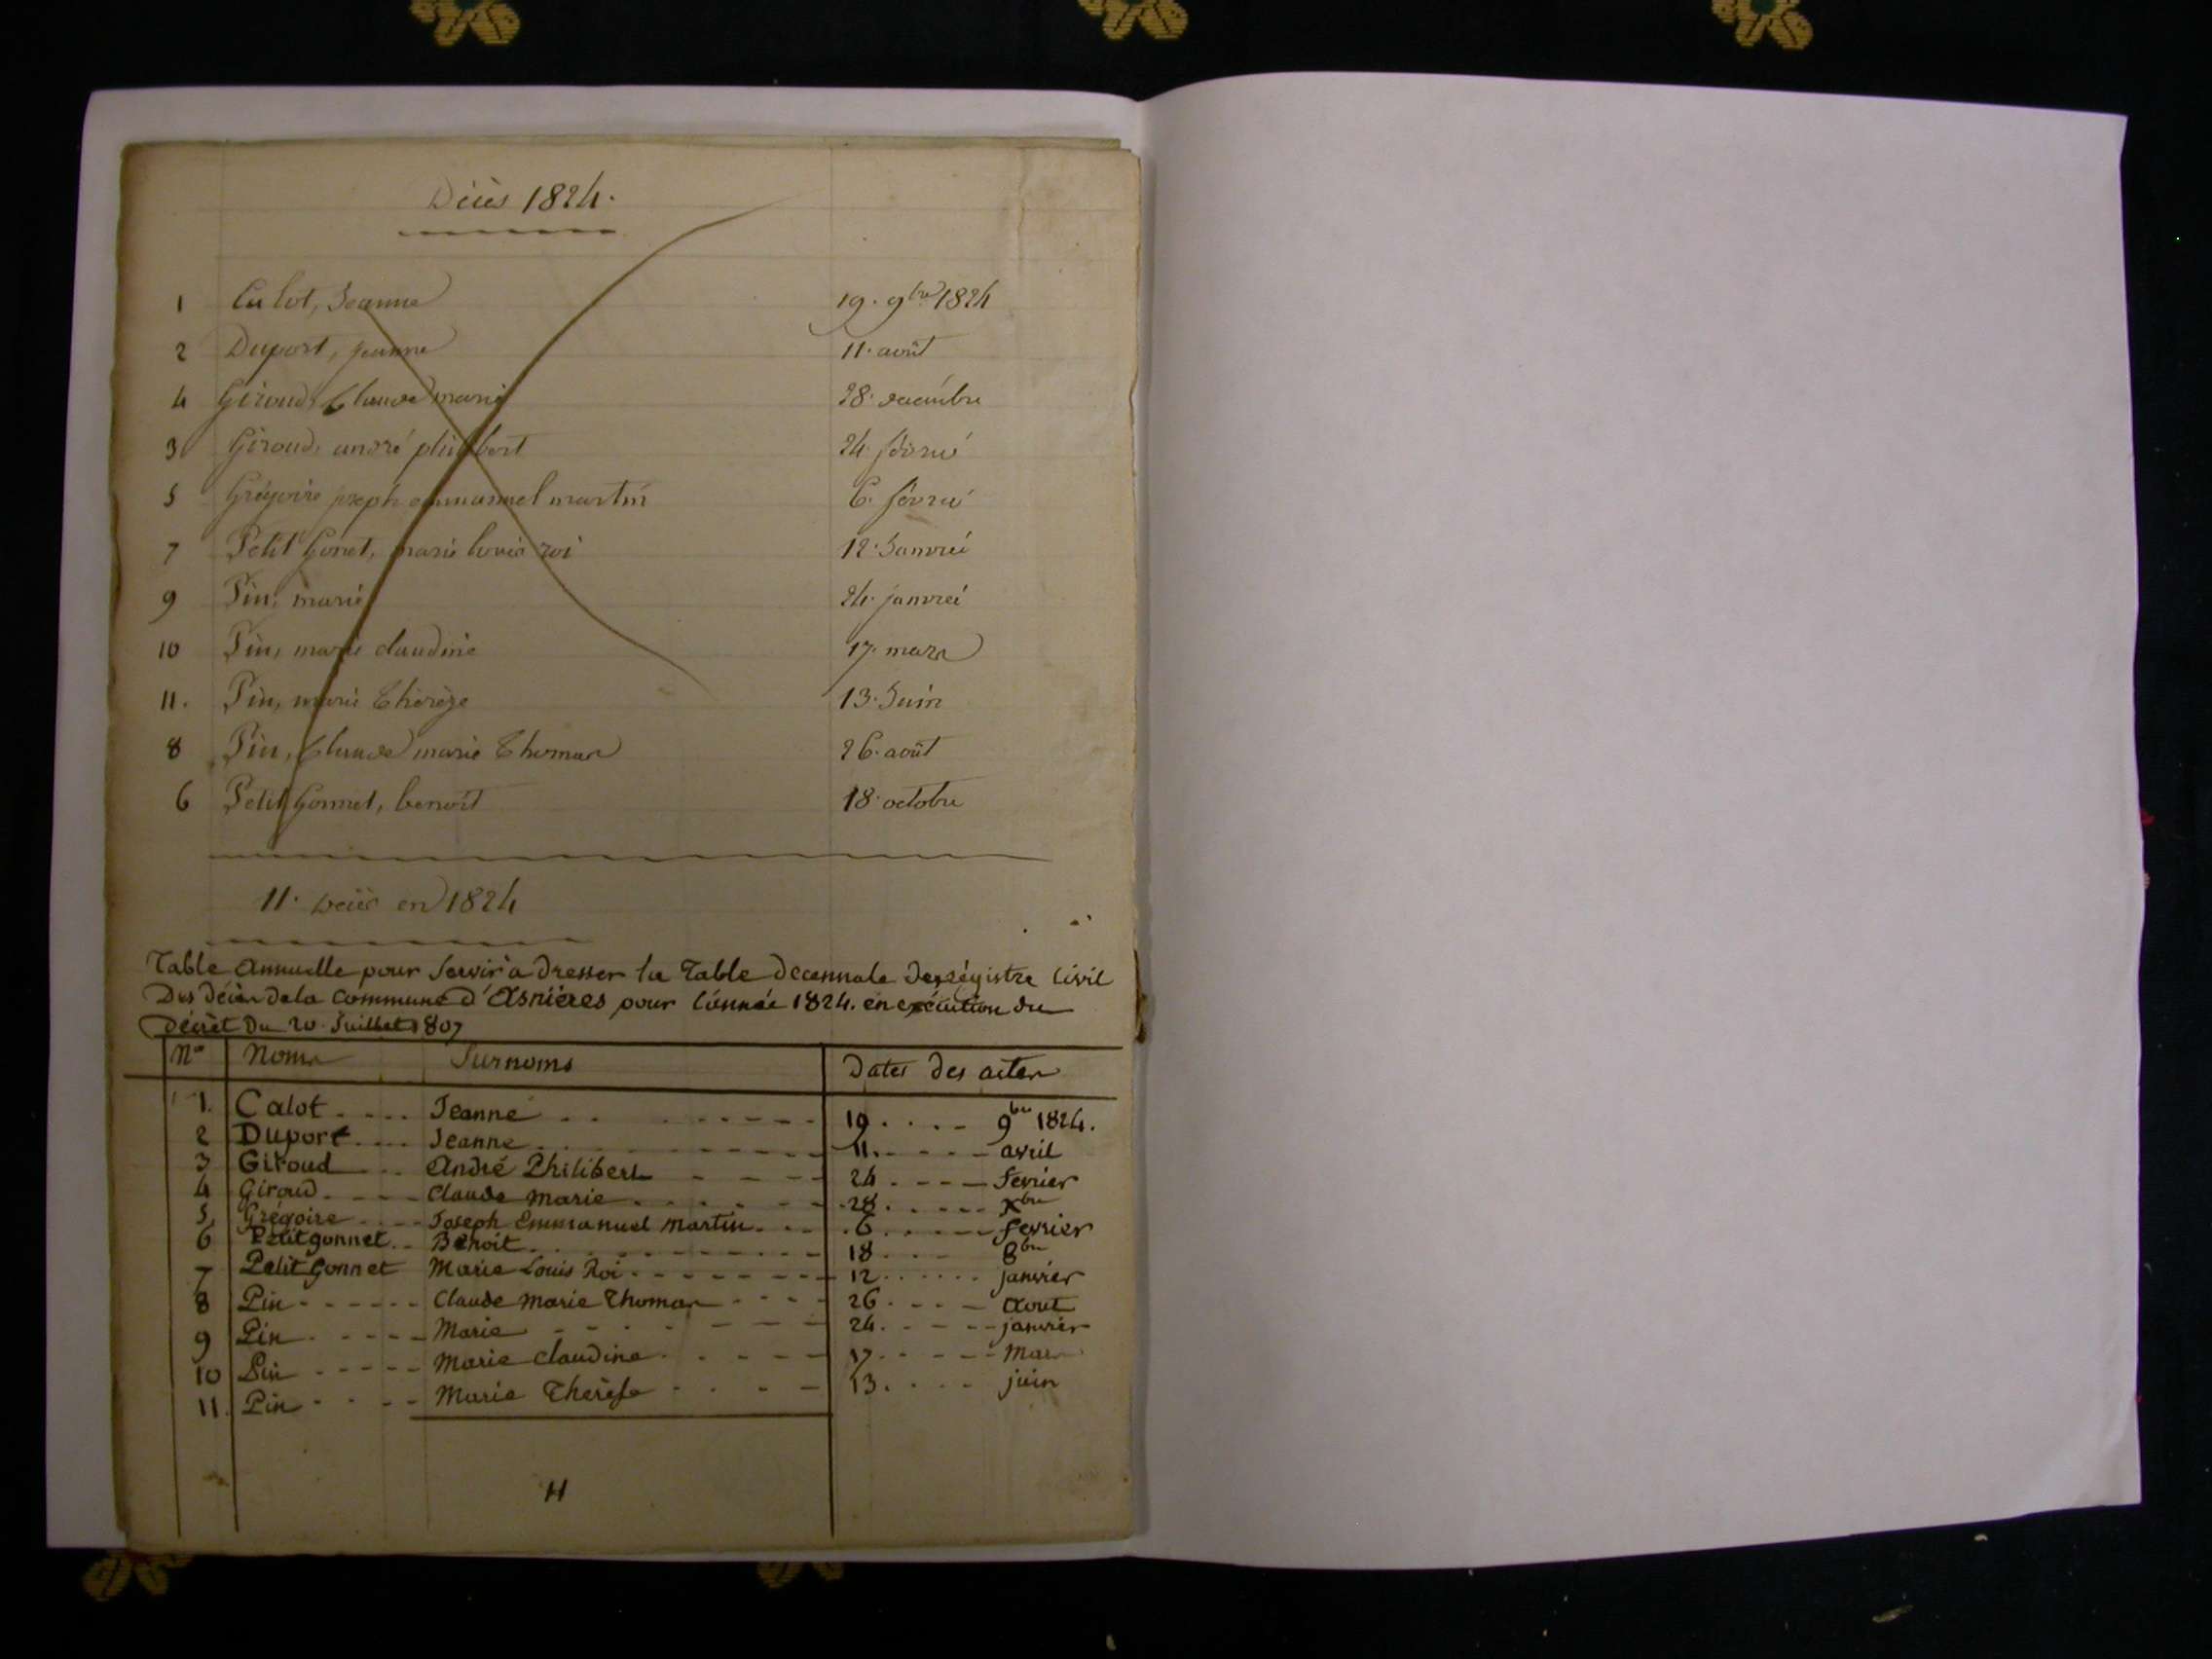 Décès 1824.
1 Calot, Jeanne 19. 9bre 1824
2 Duport, jeanne 11. août
4 Giroud, Claude marie 28. décembre
3 Giroud, andré philibert 24. février
5 Grégoire joseph emmanuel martin 6. février
7 Petit Gonet, marie louis roi 12. Janvier
9 Pin, marie 24. janvier
10 Pin, marie claudine 17. mars
11. Pin, marie Thérèze 13. Juin
8 Pin, Claude marie Thomas 26. août
6 Petit Gonnet, benoit 18. octobre
11. décès en 1824
Table annuelle pour servir a dresser la Table decennale des régistre Civil
Des décès de la Commune d'Asnières pour l'année 1824. en exécution du
Décret Du 20 Juillet 1807
Nos Noms Surnoms Dates des actes
1. Calot Jeanne 19 9bre 1824.
2 Duport Jeanne 11. avril
3 Giroud André Philibert 24 fevrier
4 Giroud Claude marie 28 Xbre
5 Grégoire Joseph Emmanuel Martin 6 fevrier
6 Petitgonnet Benoit 18 8bre
7 Petit Gonnet Marie Louis Roi 12 janvier
8 Pin Claude Marie Thomas 26 Aout
9 Pin Marie 24 janvier
10 Pin Marie Claudine 17 Mars
11. Pin Marie Therese 13. juin
11